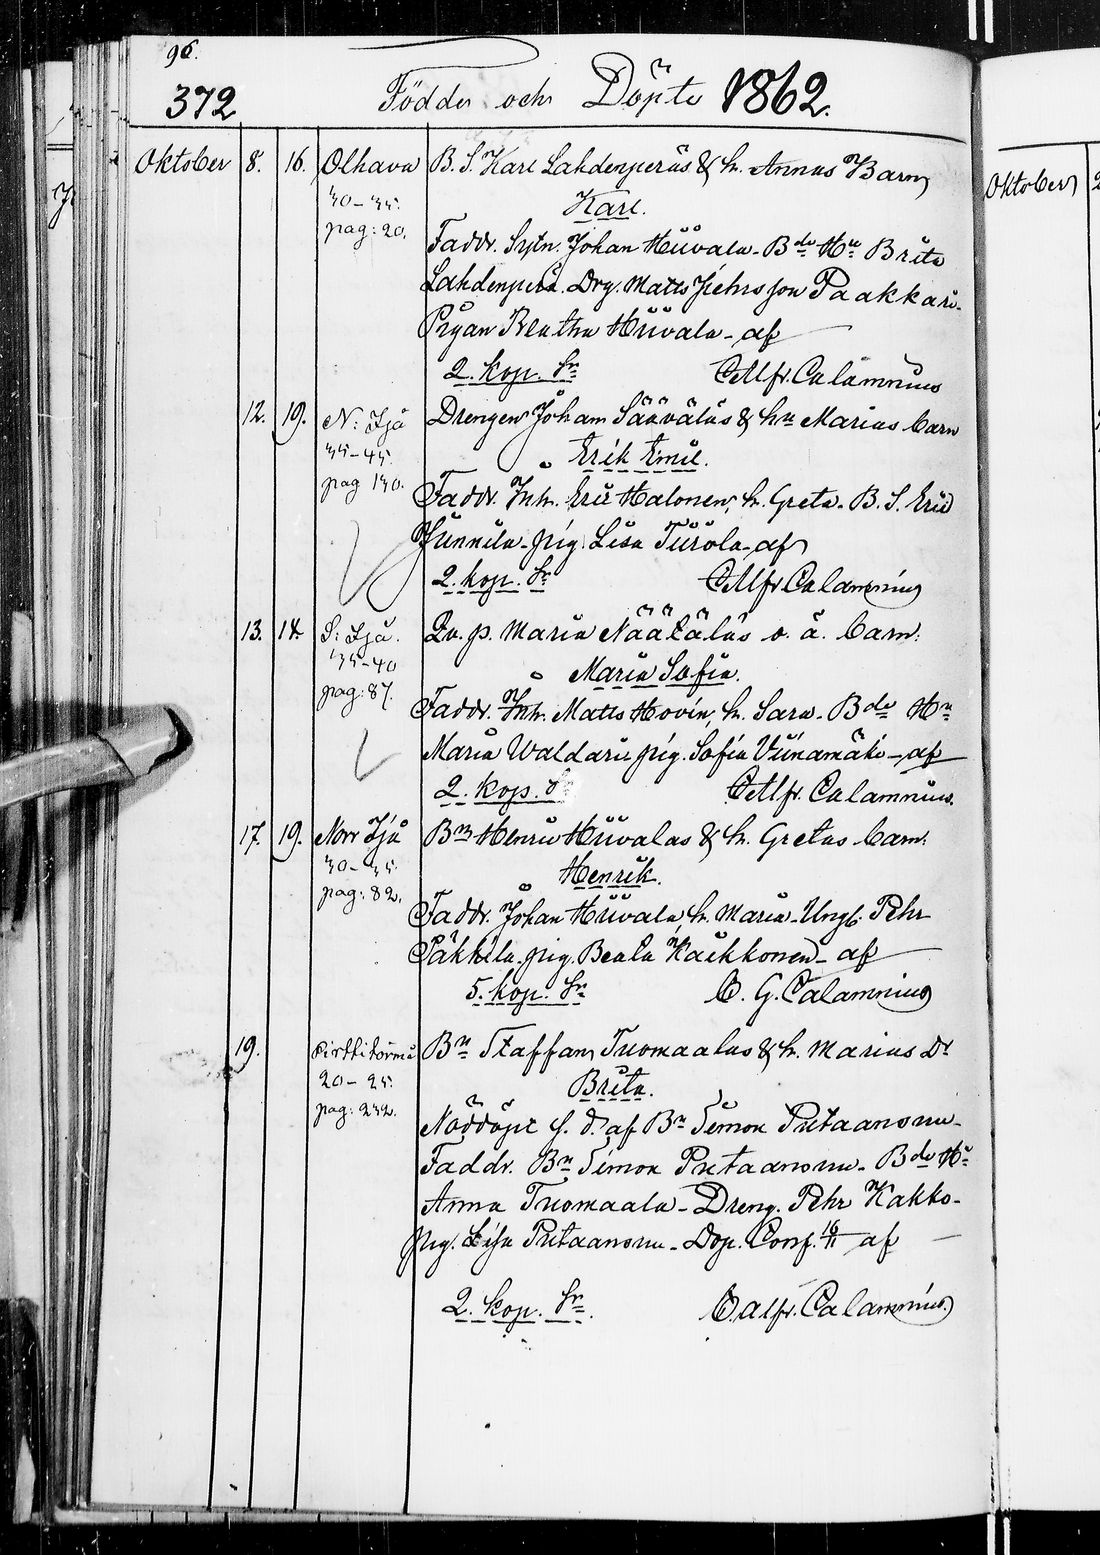 96.
372 Födde och Döpte 1862.
Oktober 8. 16. Olhava B. S. Karl Lahdenperäs & h. Annas Barn
30–35. Karl.
pag: 20.
Faddr. Sytn. Johan Hiivala. Bde Hu Brita
Lahdenperä. Drg. Matts Pehrsson Paakkari.
Pigan Beatha Hiivala – af
2. kop. Sr C Alfr. Calamnius
12. 19. N: Ijå Drengen Johan Sääväläs & hu Marias barn
35–45. Erik Emil.
pag 130.
Faddr. Inh. Eric Halonen, h. Greta. B. S. Eric
Junnila. pig. Lisa Tiirola. af
2. kop. Sr C Alfr Calamnius
13. 18. S: Ijå. Qv. p. Maria Näätäläs o. ä. barn.
35–40 Maria Sofia.
pag: 87.
Faddr. Inh. Matts Hovin, h. Sara. Bde Hu
Maria Waldari pig. Sofia Viinamäki – af
2. kop. Sr C Alfr. Calamnius.
17. 19. Norr Ijå Bn Henric Hiivalas & h. Gretas barn.
30–35. Henrik.
pag: 82.
Faddr. Johan Hiivala, h. Maria. Ungk. Pehr
Päkkilä. pig. Beata Kaikkonen – af
5. kop. Sr C. G. Calamnius
19. Pirttitörmä Bn Staffan Tuomaalas & h. Marias Dr
20–25. Brita.
pag: 232.
Nöddöpt s. d. af Bn Simon Putaansuu.
Faddr. Bn Simon Putaansuu. Bde Hu
Anna Tuomaala – Dreng. Pehr Kakko.
pig. Lisa Putaansuu. Dop. Conf. 16/11 af
2. kop. Sr. C. Alfr. Calamnius.
Oktober